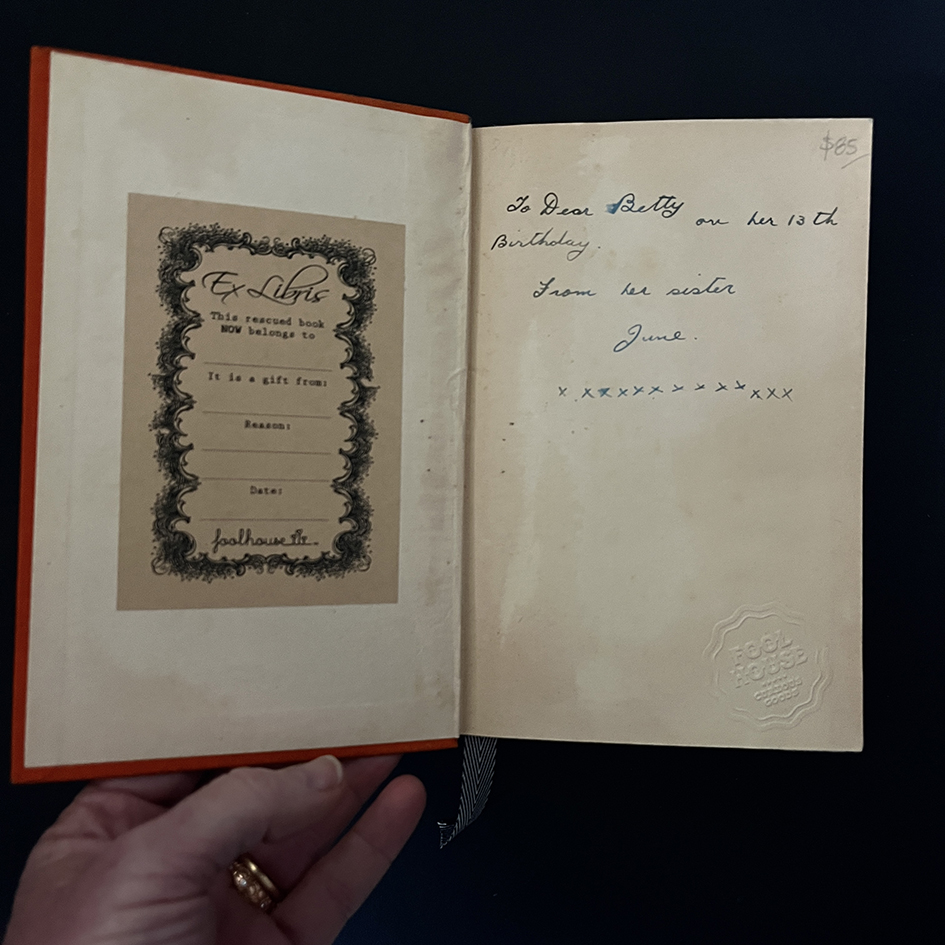 Ex Libris
This rescued book
NOW belongs to
It is a gift from:
Reason:
Date:
foolhouse
$85
To Dear Betty on her 13th
Birthday.
From her sister
June.
x x x x x x x x x x x x x x
FOOL
HOUSE
CURIOUS
GOODS